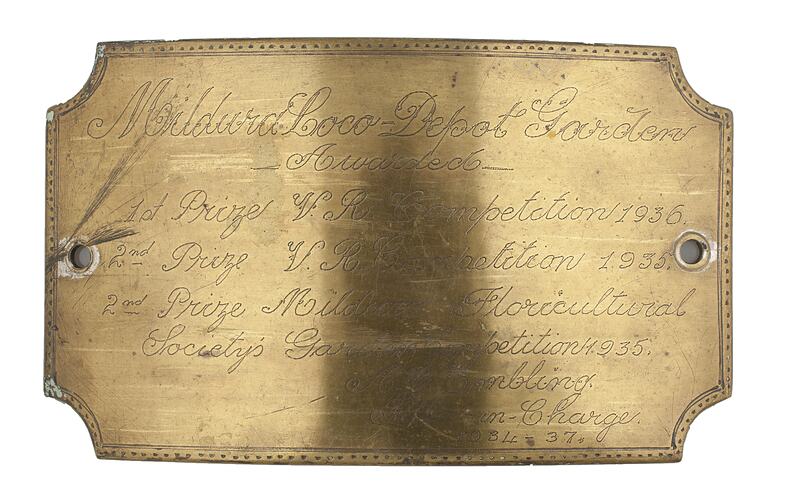 Mildura Loco-Depot Garden
Awarded
1st Prize V. R. Competition 1936.
2nd Prize V. R. Competition 1935.
2nd Prize Mildura Floricultural
Society's Garden Competition 1935.
in-Charge.
1934-37.